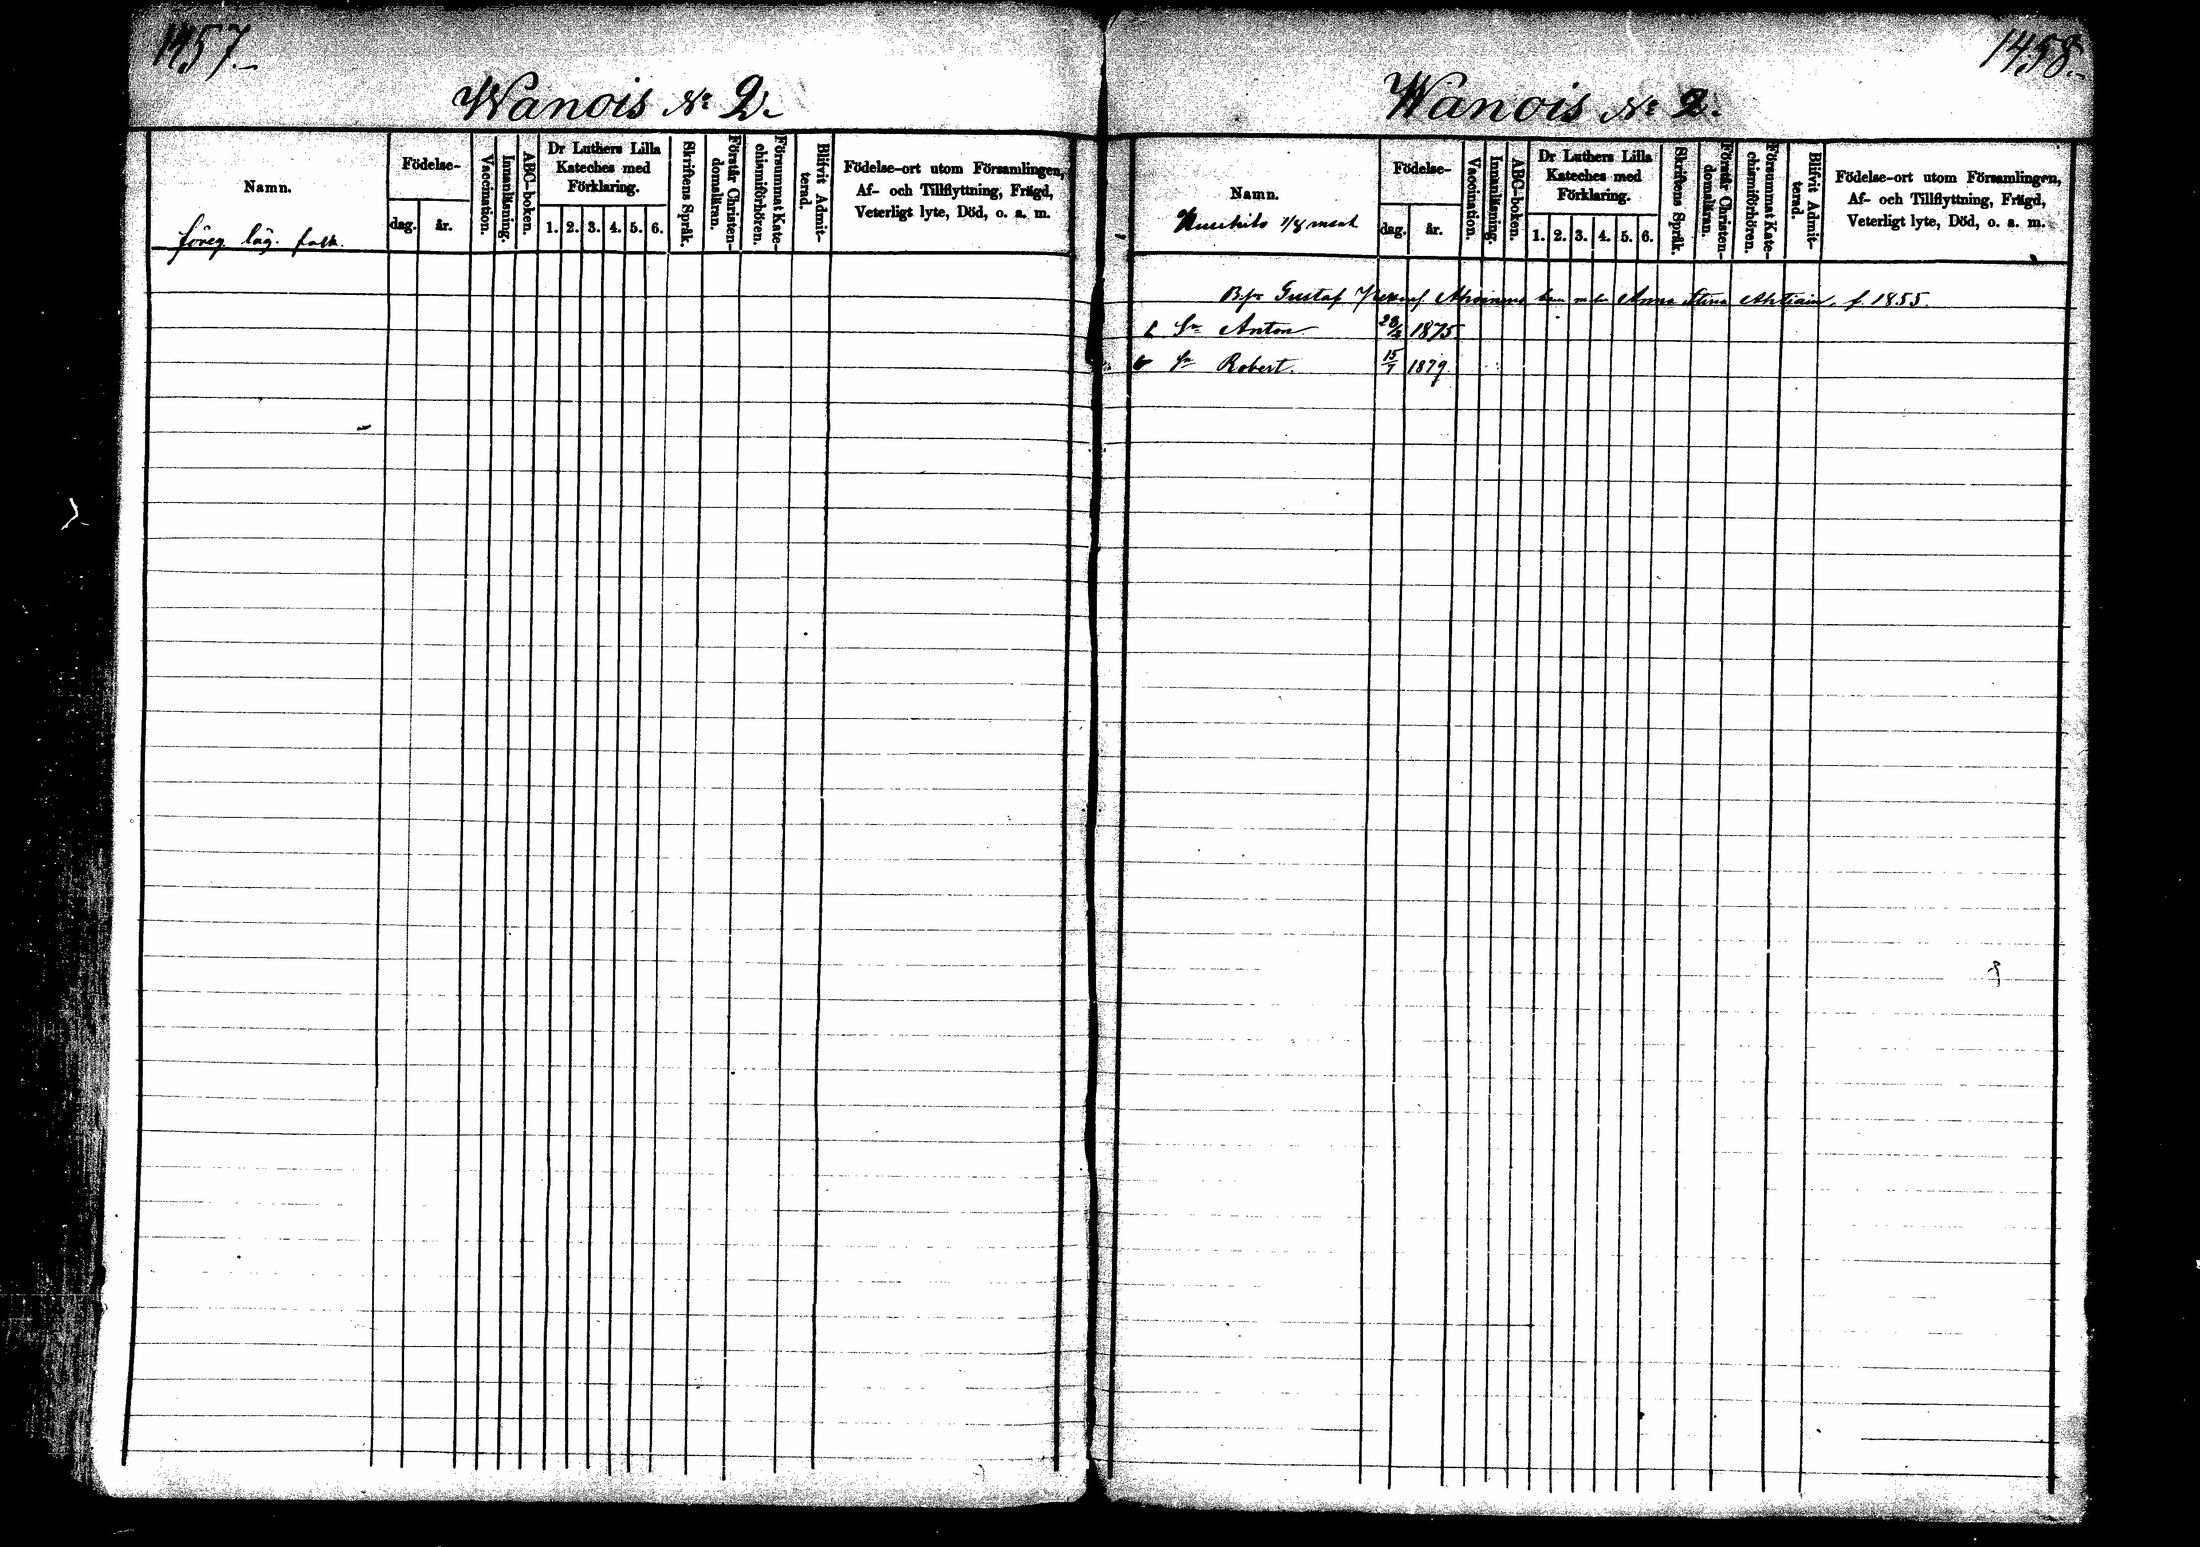 1457.
Wanois No 2.
Namn.
Födelse-
dag. år.
Vaccination.
Innanläsning.
ABC-boken.
Dr Luthers Lilla
Kateches med
Förklaring.
1. 2. 3. 4. 5. 6.
Skriftens Språk.
Förstår Christen-
domsläran.
Försummat Kate-
chismiförhören.
Blifvit Admit-
terad.
Födelse-ort utom Församlingen,
Af- och Tillflyttning, Frägd,
Veterligt lyte, Död, o. a. m.
föreg läg. folk.
1458.
Wanois No 2.
Namn.
1/8 mant
Födelse-
dag. år.
Vaccination.
Innanläsning.
ABC-boken.
Dr Luthers Lilla
Kateches med
Förklaring.
1. 2. 3. 4. 5. 6.
Skriftens Språk.
Förstår Christen-
domsläran.
Försummat Kate-
chismiförhören.
Blifvit Admit-
terad.
Födelse-ort utom Församlingen,
Af- och Tillflyttning, Frägd,
Veterligt lyte, Död, o. a. m.
Gustaf Anna Stina Ahtiain. f. 1855.
Sn Anton 1875
Sn Robert. 15/7 1879